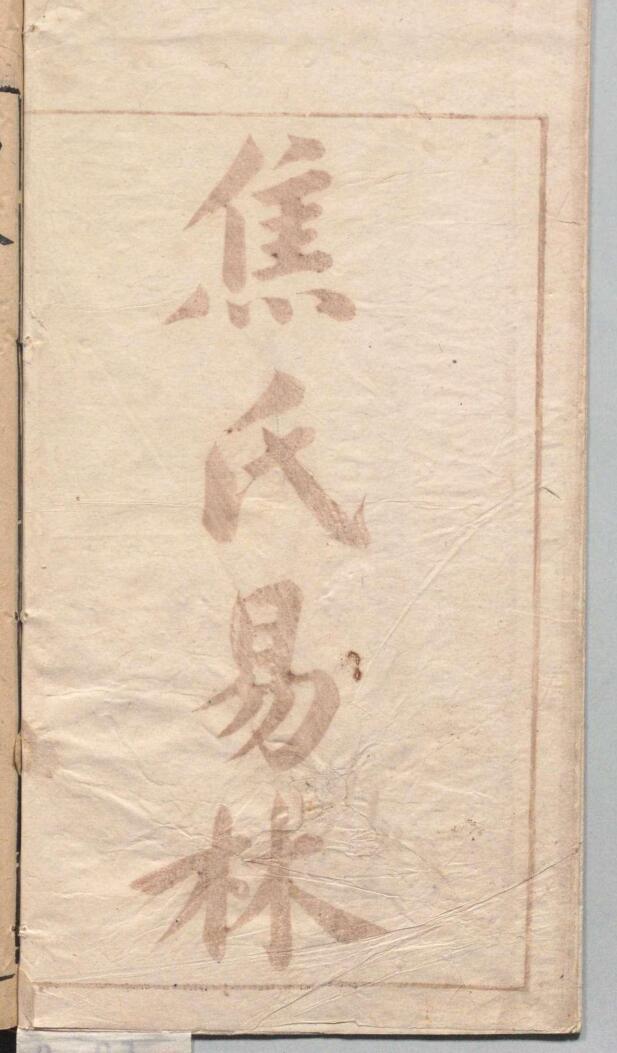 焦氏易林